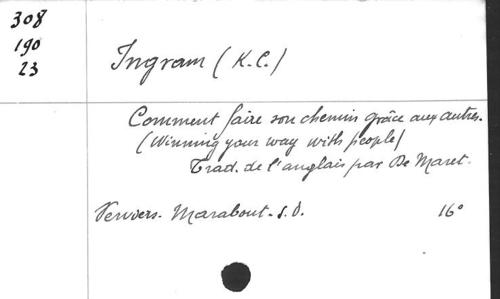 308
190
23
Ingram (K.C.)
Comment faire son chemin grâce aux autres.
(Winning your way with people)
Trad. de l'anglais par De Maret.
Verviers. Marabout. s.d.
16°